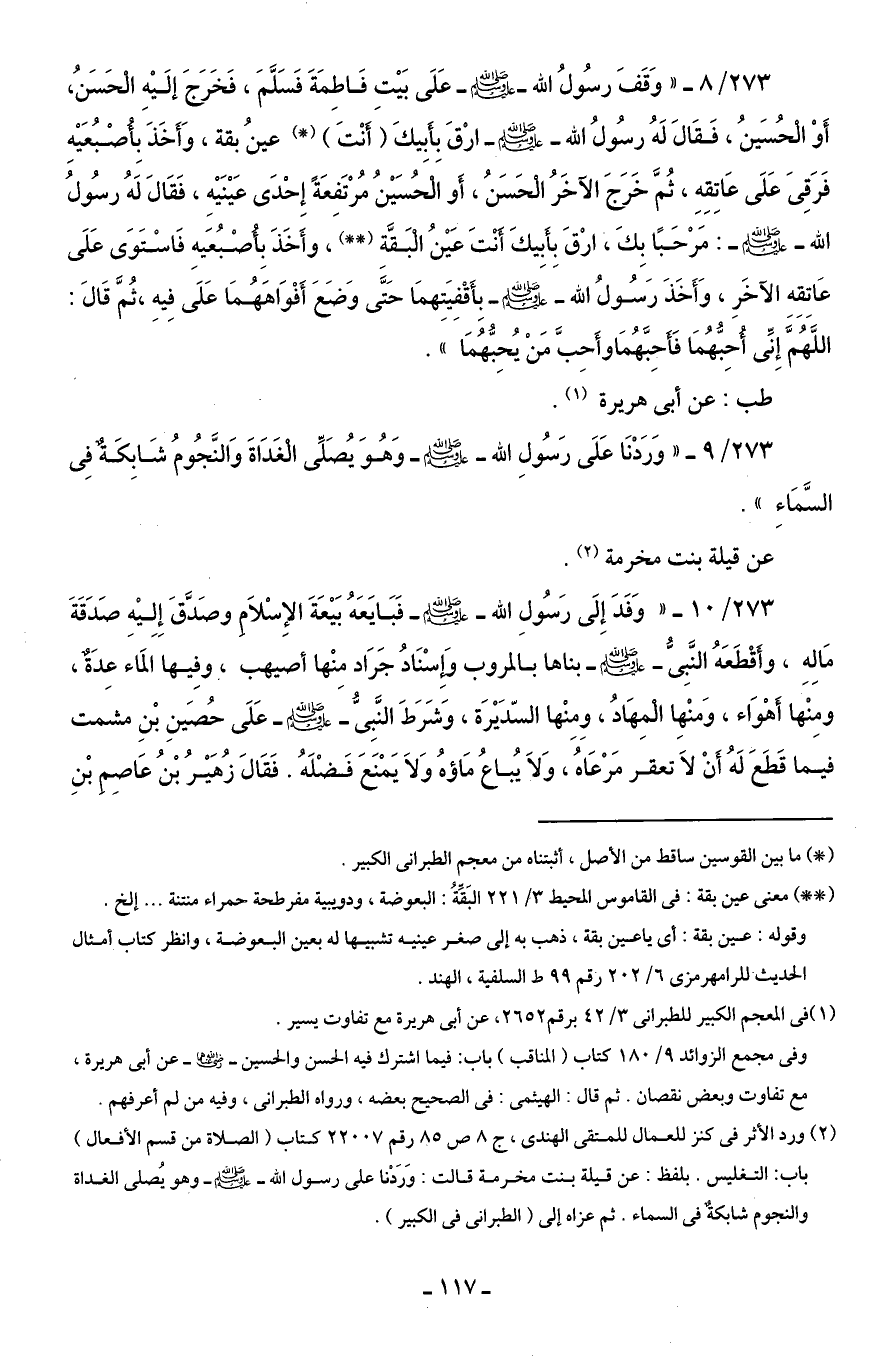 ٨/٢٧٣ ـ « وَقَفَ رسولُ الله ـ ﷺ ـ عَلَى بَيْتِ فَاطِمَةَ فَسَلَّمَ ، فَخَرَجَ إِلَيْهِ الْحَسَنُ،
أَوْ الْحُسَيْنُ ، فَقَالَ لَهُ رسولُ الله ـ ﷺ ـ ارْقَ بِأَبِيكَ ( أَنْتَ ) (*) عينُ بقة ، وَأَخَذَ بِأُصْبُعَيْهِ
فَرَقِىَ عَلَى عَاتِقِهِ ، ثُمَّ خَرَجَ الآخَرُ الْحَسَنُ ، أَو الْحُسَيْنُ مُرْتَفِعَةً إِحْدَى عَيْنَيْهِ ، فَقَالَ لَهُ رسولُ
الله ـ ﷺ ـ : مَرْحَبًا بِكَ ، ارْقَ بِأَبِيكَ أَنْتَ عَيْنُ الْبَقَّةِ (**) ، وأَخَذَ بِأُصْبُعَيهِ فَاسْتَوَى عَلَى
عَاتِقِهِ الآخَرِ ، وَأَخَذَ رَسُولُ الله ـ ﷺ ـ بِأَقْفِيَتِهِمَا حَتَّى وَضَعَ أَفْوَاهَهُمَا عَلَى فِيهِ ،ثُمَّ قَالَ :
اللَّهُمَّ إِنِّى أُحِبُّهُمَا فَأَحِبَّهُمَا وأَحِبَّ مَنْ يُحِبُّهُمَا » .
طب : عن أبى هريرة (١) .
٩/٢٧٣ ـ « وَرَدْنَا عَلَى رسَولِ الله ـ ﷺ ـ وَهُوَ يُصَلِّى الْغَدَاةَ وَالنَّجُومُ شَابِكَةٌ فِى
السَّمَاءِ » .
عن قيلة بنت مخرمة (٢) .
١٠/٢٧٣ ـ « وَفَدَ إِلَى رَسُولِ الله ـ ﷺ ـ فَبَايَعَهُ بَيْعَةَ الإِسْلاَمِ وصَدَّقَ إِلَيْهِ صَدَقَةَ
مَالِهِ ، وأَقْطَعَهُ النَّبِىُّ ـ ﷺ ـ بناها بالمروب وإِسْنَادُ جَرَاد مِنْها أصيهب ، وفيها الْمَاء عِدَةٌ ،
ومِنْها أَهْوَاء ، ومَنْها الْمِهَادُ ، ومِنْها السِّدَيْرَة ، وَشَرَطَ النَّبِىُّ ـ ﷺ ـ عَلَى حُصَينِ بْنِ مشمت
فيما قَطَعَ لَهُ أَنْ لاَ تعقر مَرْعَاهُ ، وَلاَ يُباعُ مَاؤهُ وَلاَ يَمْنَعَ فَضْلَهُ . فَقَالَ زُهَيْرُ بْنُ عَاصِمِ بْنِ
(*) ما بين القوسين ساقط من الأصل ، أثبتناه من معجم الطبرانى الكبير .
(**) معنى عين بقة : فى القاموس المحيط ٣/ ٢٢١ البَقَّةُ : البعوضة ، ودويبية مفرطحة حمراء منتنة ... إلخ .
وقوله : عين بقة : أى ياعين بقة ، ذهب به إلى صغر عينيه تشبيها له بعين البعوضة ، وانظر كتاب أمثال
الحديث للرامهرمزى ٦/ ٢٠٢ رقم ٩٩ ط السلفية ، الهند .
(١)فى المعجم الكبير للطبرانى ٣/ ٤٢ برقم٢٦٥٢، عن أبى هريرة مع تفاوت يسير .
وفى مجمع الزوائد ٩/ ١٨٠ كتاب ( المناقب ) باب: فيما اشترك فيه الحسن والحسين ـ ـ عن أبى هريرة ،
مع تفاوت وبعض نقصان . ثم قال : الهيثمى : فى الصحيح بعضه ، ورواه الطبرانى ، وفيه من لم أعرفهم .
(٢) ورد الأثر فى كنز للعمال للمتقى الهندى ، ج ٨ ص ٨٥ رقم ٢٢٠٠٧ كتاب ( الصلاة من قسم الأفعال )
باب: التغليس . بلفظ : عن قيلة بنت مخرمة قالت : وَرَدْنا على رسول الله ـ ﷺ ـ وهو يُصلى الغداة
والنجوم شابكةٌ فى السماء . ثم عزاه إلى ( الطبرانى فى الكبير ) .
ـ ١١٧ ـ